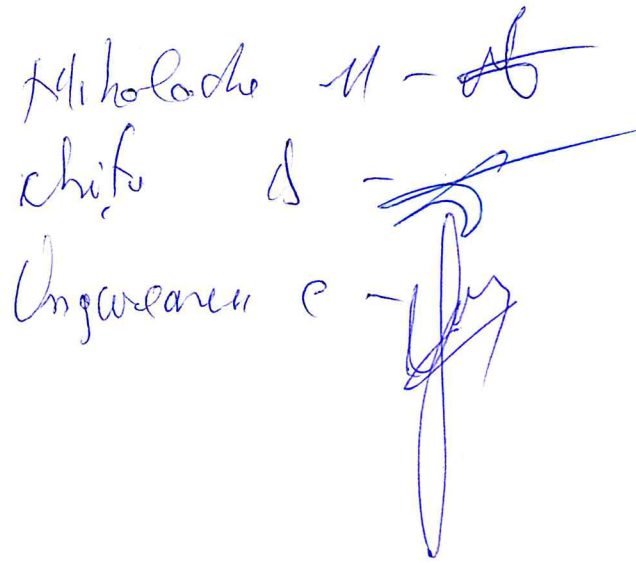 Miholache M -
Chițu S -
Ungureanu C -